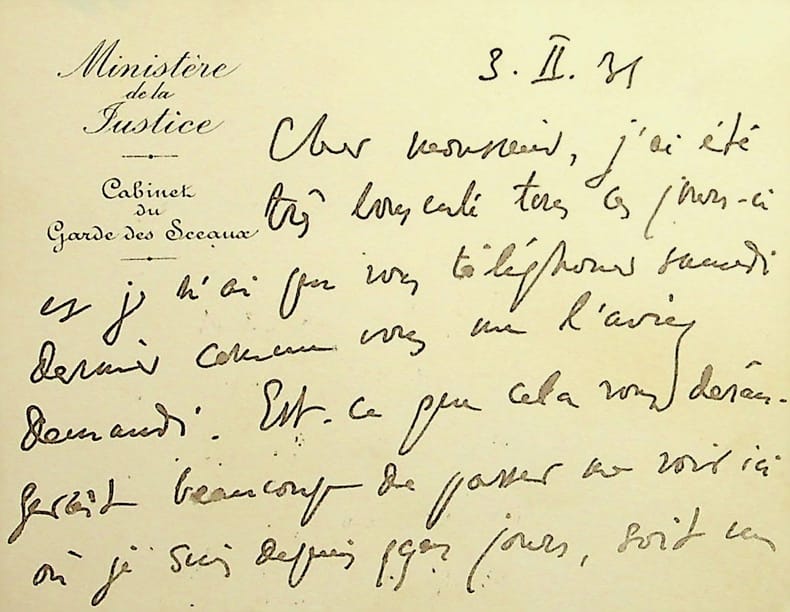 Ministère
de la
Justice
Cabinet
du
Garde des Sceaux
3. II. 31
Cher monsieur, j'ai été
très bousculé tous ces jours-ci
et je n'ai pu vous téléphoner samedi
dernier comme vous me l'aviez
demandé. Est-ce que cela vous déran-
gerait beaucoup de passer me voir ici
où je suis depuis qques jours, soit un